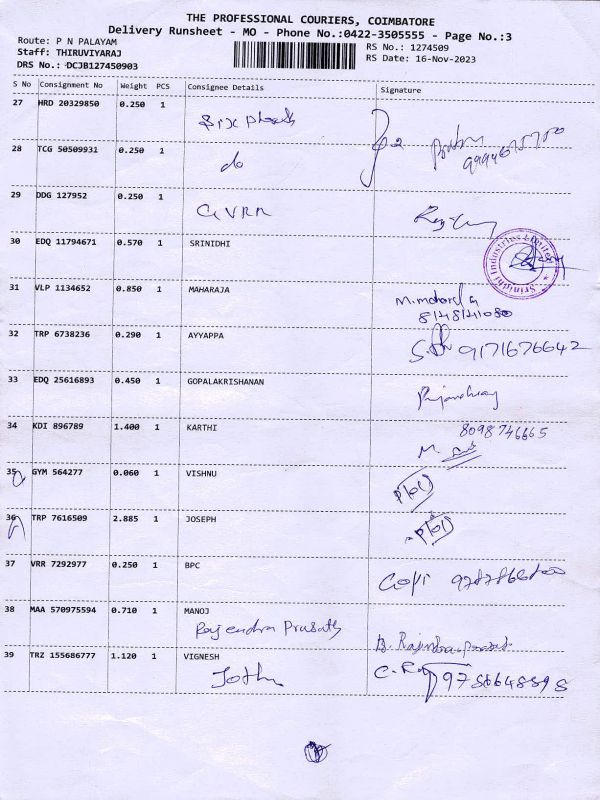 THE PROFESSIONAL COURIERS, COIMBATORE
Delivery Runsheet - MO - Phone No.:0422-3505555 - Page No.:3
Route: P N PALAYAM
Staff: THIRUVIYARAJ
DRS No.: DCJB127450903
RS No.: 1274509
RS Date: 16-Nov-2023
S No Consignment No Weight PCS Consignee Details Signature
27 HRD 20329850 0.250 1
28 TCG 50509931 0.250 1 do
29 DDG 127952 0.250 1 GVRR
30 EDQ 11794671 0.570 1 SRINIDHI
Srinidhi Industries Limited
31 VLP 1134652 0.850 1 MAHARAJA
8148141080
32 TRP 6738236 0.290 1 AYYAPPA 9171676642
33 EDQ 25616893 0.450 1 GOPALAKRISHANAN
34 KDI 896789 1.400 1 KARTHI 8098746665
35 GYM 564277 0.060 1 VISHNU
36 TRP 7616509 2.885 1 JOSEPH
37 VRR 7292977 0.250 1 BPC Gopi
38 MAA 570975594 0.710 1 MANOJ
Rajendra Prasath
39 TRZ 155686777 1.120 1 VIGNESH
Jothi